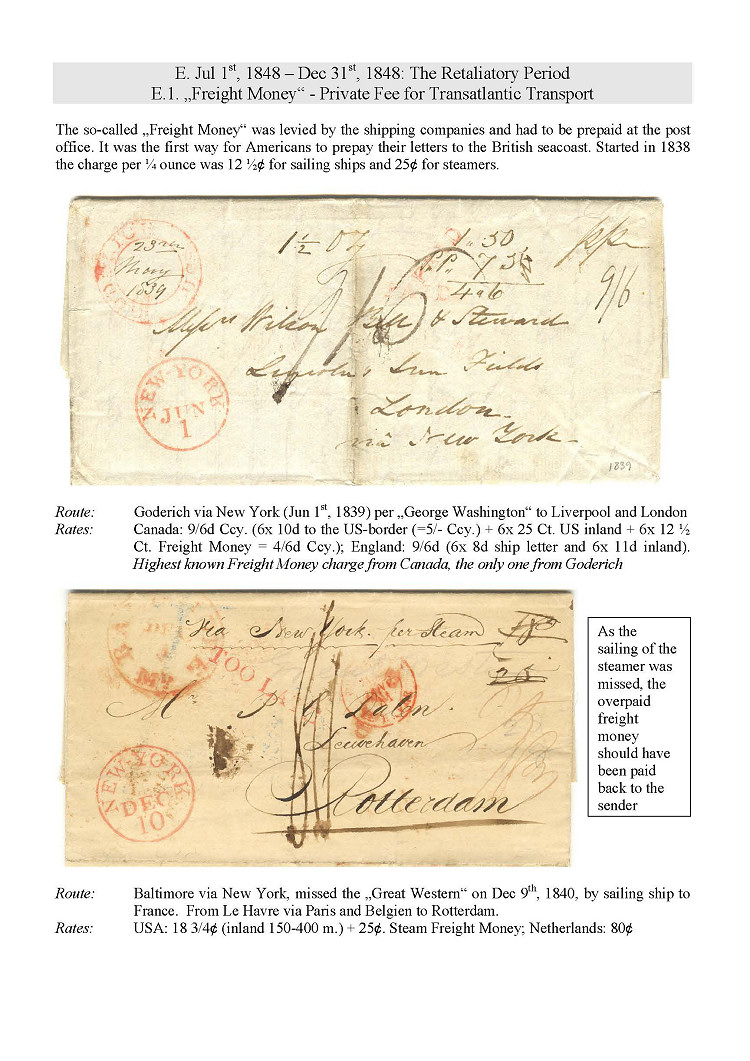 E. Jul 1st, 1848 – Dec 31st, 1848: The Retaliatory Period
E.1. „Freight Money“ - Private Fee for Transatlantic Transport
The so-called „Freight Money“ was levied by the shipping companies and had to be prepaid at the post
office. It was the first way for Americans to prepay their letters to the British seacoast. Started in 1838
the charge per ¼ ounce was 12 ½¢ for sailing ships and 25¢ for steamers.
23rd
May
1839
1½ Oz
1.. 50
pp
P.P. 73½
4.. 6
9/6
Messrs Wilson Bell & Steward
Lincoln's Inn Fields
London
via New York
NEW-YORK
JUN
1
1839
Route: Goderich via New York (Jun 1st, 1839) per „George Washington“ to Liverpool and London
Rates: Canada: 9/6d Ccy. (6x 10d to the US-border (=5/- Ccy.) + 6x 25 Ct. US inland + 6x 12 ½
Ct. Freight Money = 4/6d Ccy.); England: 9/6d (6x 8d ship letter and 6x 11d inland).
Highest known Freight Money charge from Canada, the only one from Goderich
Via New York per Steam
25
TOO LATE
Leuvehaven
Rotterdam
NEW-YORK
DEC
10
As the
sailing of the
steamer was
missed, the
overpaid
freight
money
should have
been paid
back to the
sender
Route: Baltimore via New York, missed the „Great Western“ on Dec 9th, 1840, by sailing ship to
France. From Le Havre via Paris and Belgien to Rotterdam.
Rates: USA: 18 3/4¢ (inland 150-400 m.) + 25¢. Steam Freight Money; Netherlands: 80¢